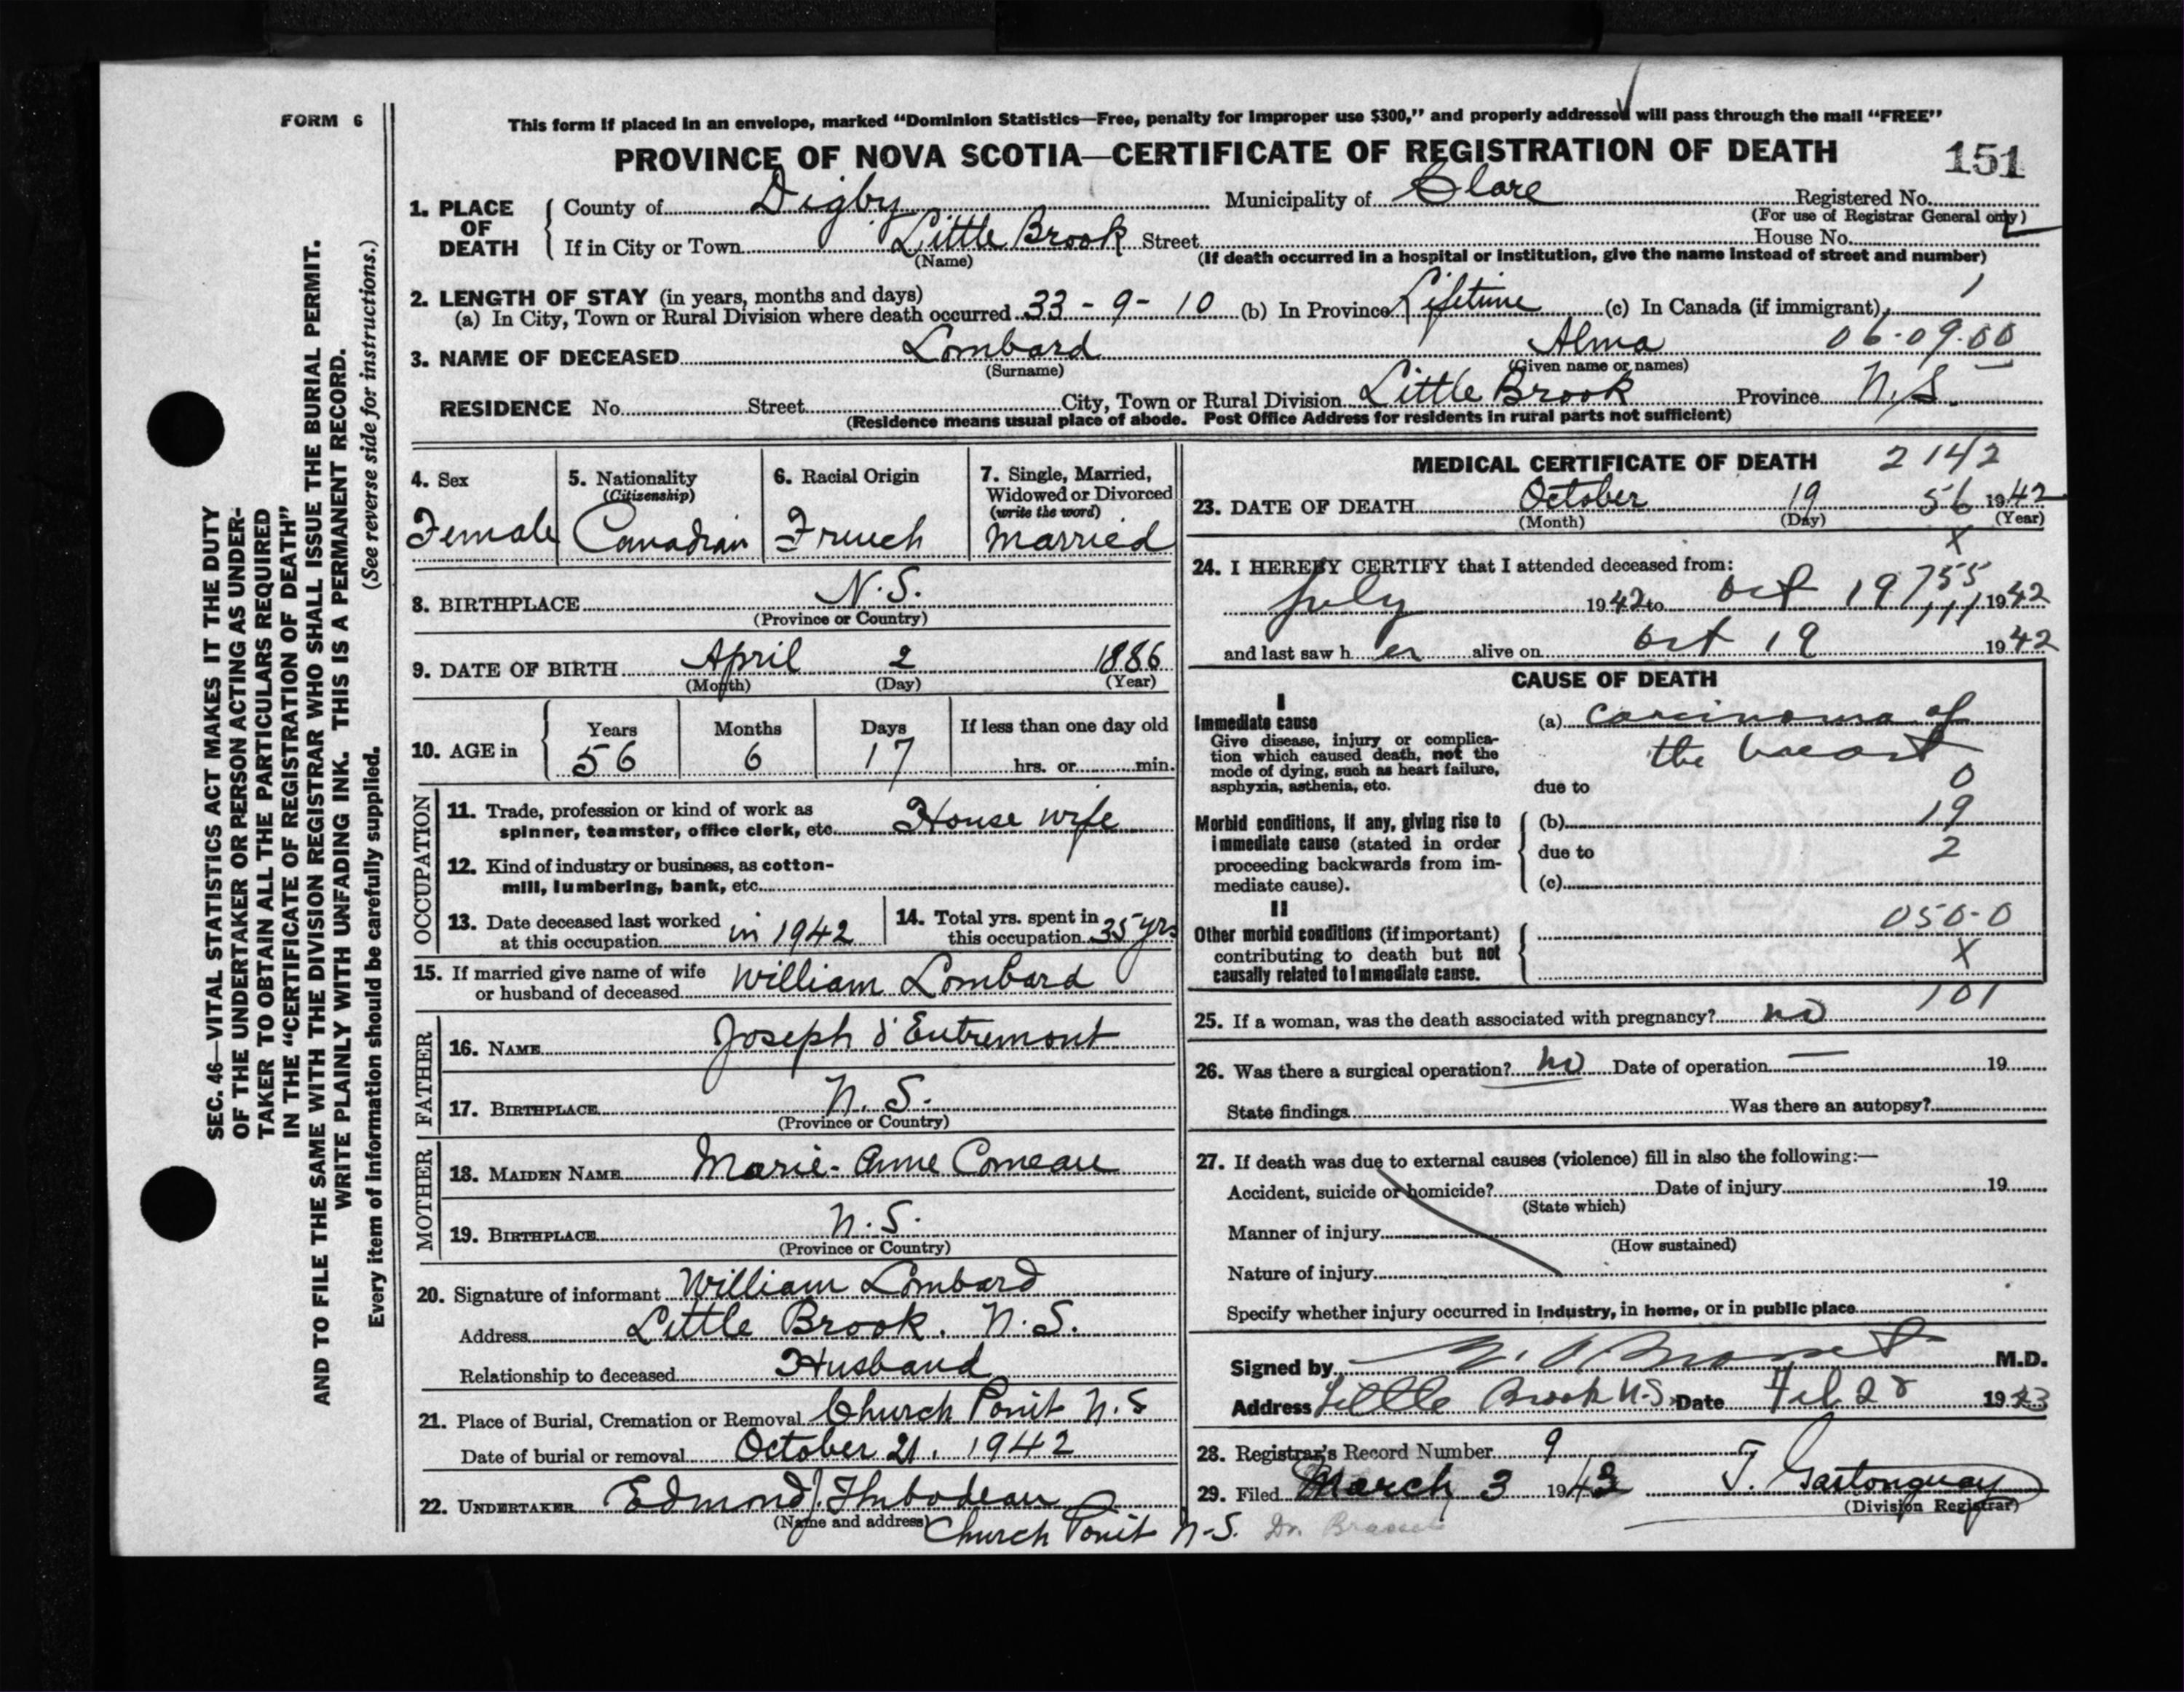 FORM 6
This form if placed in an envelope, marked “Dominion Statistics—Free, penalty for improper use $300,” and properly addressed will pass through the mail “FREE”
PROVINCE OF NOVA SCOTIA—CERTIFICATE OF REGISTRATION OF DEATH 151
1. PLACE OF DEATH County of Digby Municipality of Clare Registered No.
(For use of Registrar General only)
If in City or Town Little Brook Street House No.
(Name) (If death occurred in a hospital or institution, give the name instead of street and number)
2. LENGTH OF STAY (in years, months and days)
(a) In City, Town or Rural Division where death occurred 33 - 9 - 10 (b) In Province Lifetime (c) In Canada (if immigrant) 1
3. NAME OF DECEASED Lombard Alma 06-09-00
(Surname) (Given name or names)
RESIDENCE No. Street City, Town or Rural Division Little Brook Province N.S.
(Residence means usual place of abode. Post Office Address for residents in rural parts not sufficient)
4. Sex Female
5. Nationality (Citizenship) Canadian
6. Racial Origin French
7. Single, Married, Widowed or Divorced (write the word) Married
8. BIRTHPLACE N.S.
(Province or Country)
9. DATE OF BIRTH April 2 1886
(Month) (Day) (Year)
10. AGE in Years Months Days If less than one day old
56 6 17 hrs. or min.
OCCUPATION
11. Trade, profession or kind of work as
spinner, teamster, office clerk, etc. House wife
12. Kind of industry or business, as cotton-
mill, lumbering, bank, etc.
13. Date deceased last worked
at this occupation in 1942
14. Total yrs. spent in
this occupation 35 yrs
15. If married give name of wife
or husband of deceased William Lombard
FATHER
16. NAME Joseph d'Entremont
17. BIRTHPLACE N.S.
(Province or Country)
MOTHER
18. MAIDEN NAME Marie-Anne Comeau
19. BIRTHPLACE N.S.
(Province or Country)
20. Signature of informant William Lombard
Address Little Brook. N.S.
Relationship to deceased Husband
21. Place of Burial, Cremation or Removal Church Point N.S
Date of burial or removal October 21, 1942
22. UNDERTAKER Edmond J. Thibodeau
(Name and address) Church Point N-S.
MEDICAL CERTIFICATE OF DEATH 2142
23. DATE OF DEATH October 19 56 1942
(Month) (Day) (Year)
X
24. I HEREBY CERTIFY that I attended deceased from:
755
July 1942 to Oct 19 1942
and last saw her alive on Oct 19 1942
CAUSE OF DEATH
I
Immediate cause (a) carcinoma of
the breast
Give disease, injury or complica-
tion which caused death, not the
mode of dying, such as heart failure,
asphyxia, asthenia, etc. due to 0
Morbid conditions, if any, giving rise to (b) 19
immediate cause (stated in order due to 2
proceeding backwards from im-
mediate cause). (c)
II
050-0
Other morbid conditions (if important)
contributing to death but not X
causally related to immediate cause.
101
25. If a woman, was the death associated with pregnancy? no
26. Was there a surgical operation? no Date of operation — 19
State findings Was there an autopsy?
27. If death was due to external causes (violence) fill in also the following:—
Accident, suicide or homicide? Date of injury 19
(State which)
Manner of injury
(How sustained)
Nature of injury
Specify whether injury occurred in industry, in home, or in public place
Signed by M.D.
Address Little Brook N-S Date Feb 28 1943
28. Registrar's Record Number 9
29. Filed March 3 1943 J. Gastonguay
(Division Registrar)
Dr.
SEC. 46—VITAL STATISTICS ACT MAKES IT THE DUTY
OF THE UNDERTAKER OR PERSON ACTING AS UNDER-
TAKER TO OBTAIN ALL THE PARTICULARS REQUIRED
IN THE “CERTIFICATE OF REGISTRATION OF DEATH”
AND TO FILE THE SAME WITH THE DIVISION REGISTRAR WHO SHALL ISSUE THE BURIAL PERMIT.
WRITE PLAINLY WITH UNFADING INK. THIS IS A PERMANENT RECORD.
Every item of information should be carefully supplied. (See reverse side for instructions.)